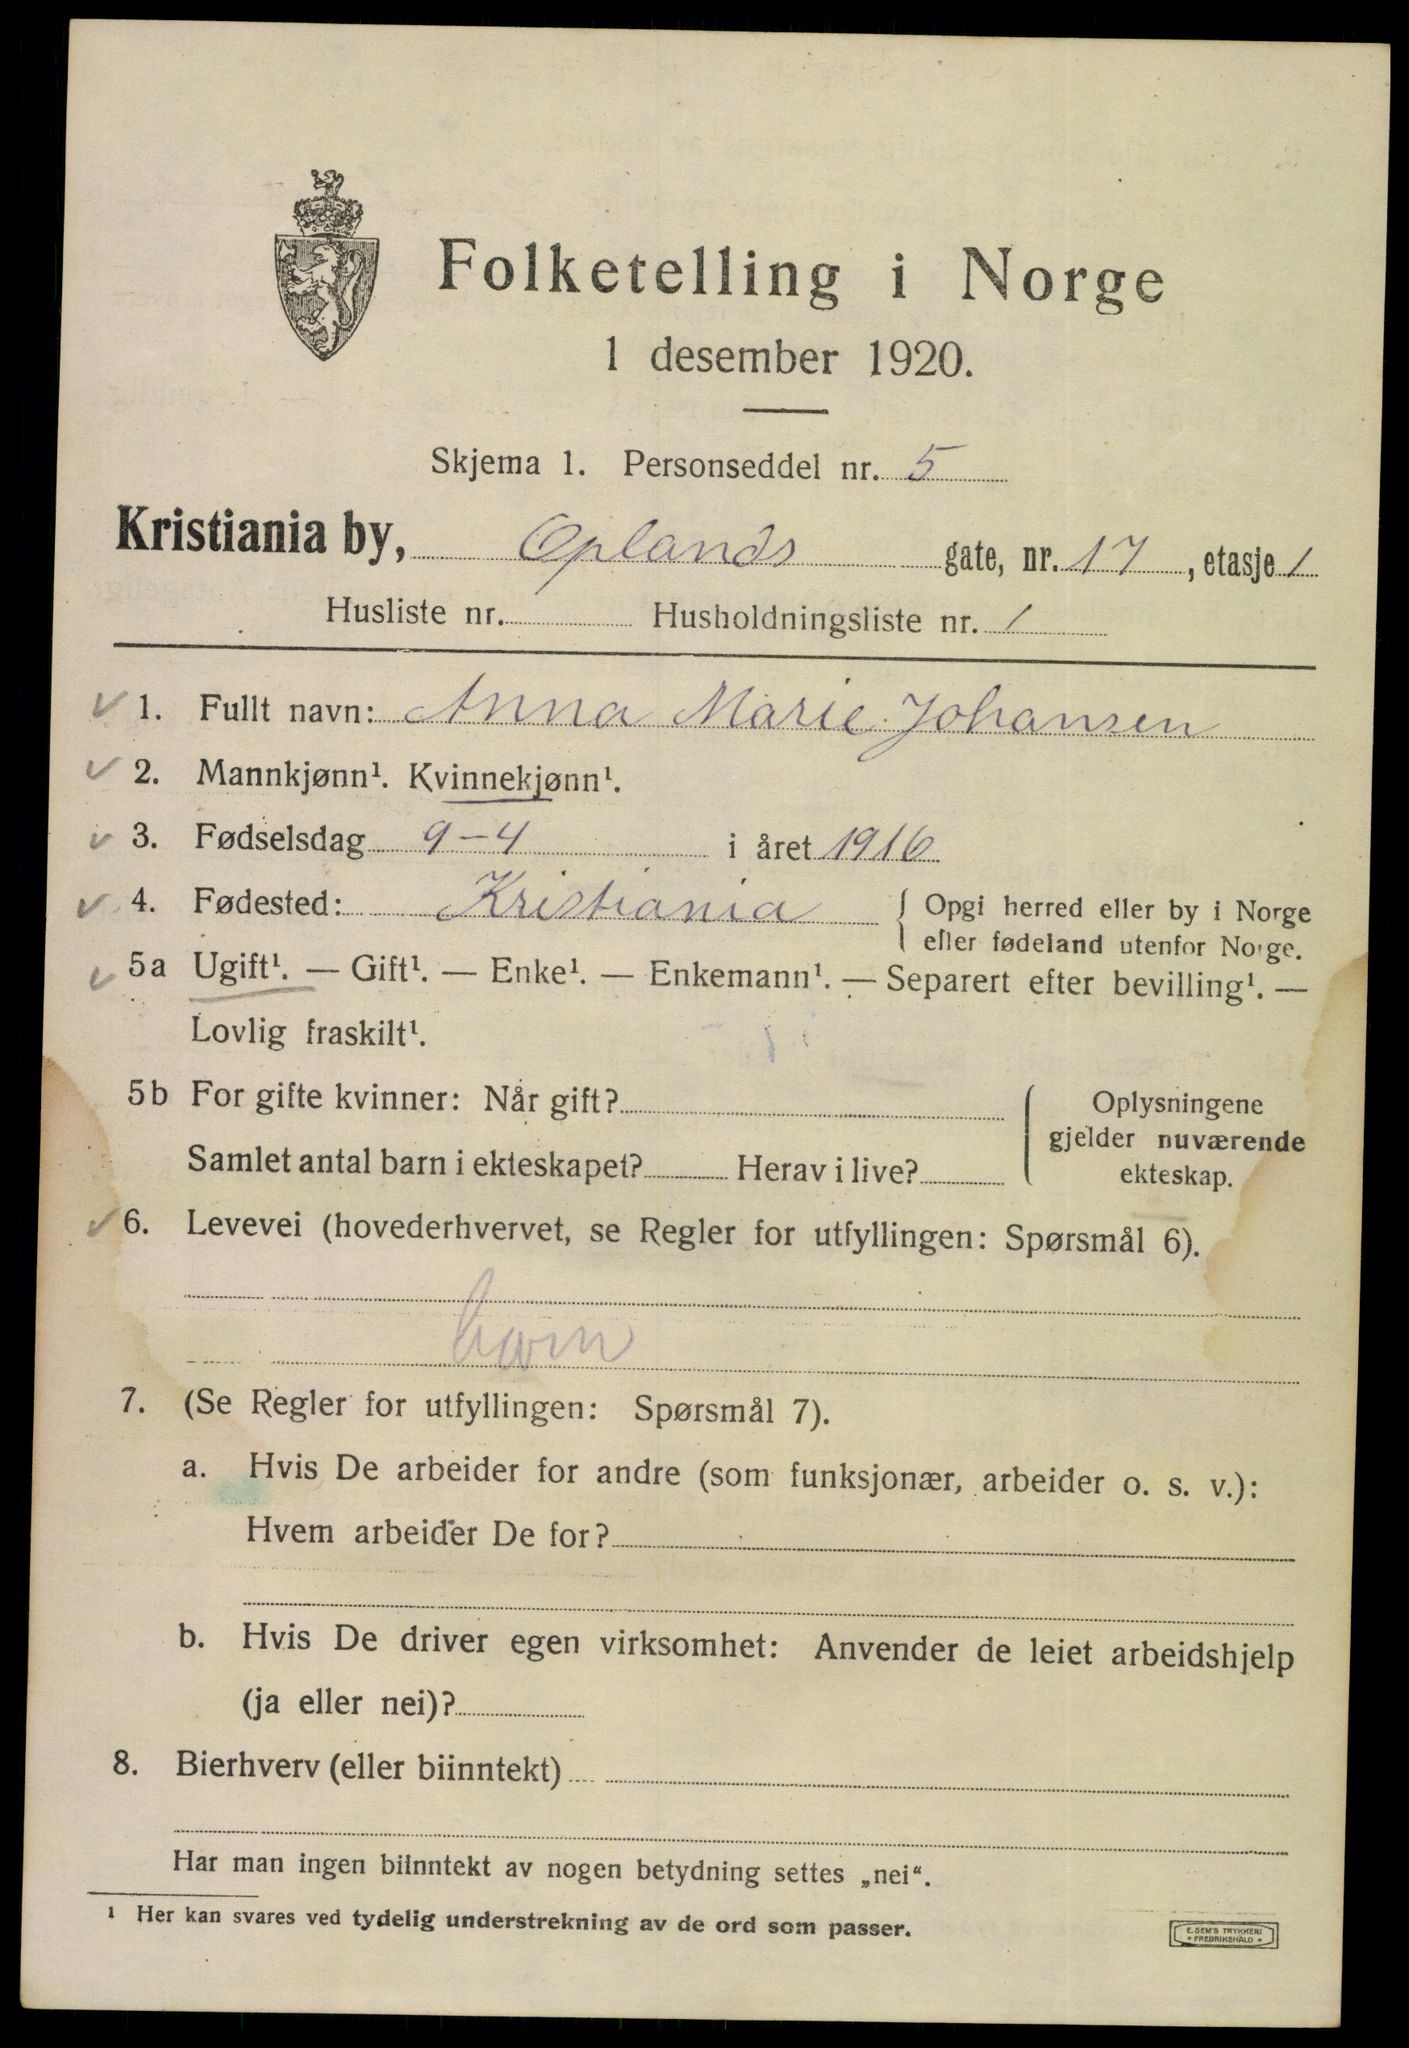 Folketelling i Norge
1 desember 1920.
Skjema 1. Personseddel nr. 5
Kristiania by, Oplands gate, nr. 17, etasje 1
Husliste nr. Husholdningsliste nr. 1
1. Fullt navn: Anna Marie Johansen
2. Mannkjønn¹. Kvinnekjønn¹.
3. Fødselsdag 9-4 i året 1916
4. Fødested: Kristiania { Opgi herred eller by i Norge
eller fødeland utenfor Norge.
5a Ugift¹. — Gift¹. — Enke¹. — Enkemann¹. — Separert efter bevilling¹. —
Lovlig fraskilt¹.
5b For gifte kvinner: Når gift? { Oplysningene
gjelder nuværende
Samlet antal barn i ekteskapet? Herav i live? ekteskap.
6. Levevei (hovederhvervet, se Regler for utfyllingen: Spørsmål 6).
barn
7. (Se Regler for utfyllingen: Spørsmål 7).
a. Hvis De arbeider for andre (som funksjonær, arbeider o. s. v.):
Hvem arbeider De for?
b. Hvis De driver egen virksomhet: Anvender de leiet arbeidshjelp
(ja eller nei)?
8. Bierhverv (eller biinntekt)
Har man ingen biinntekt av nogen betydning settes „nei“.
¹ Her kan svares ved tydelig understrekning av de ord som passer.
E. SEM'S TRYKKERI
* FREDRIKSHALD *